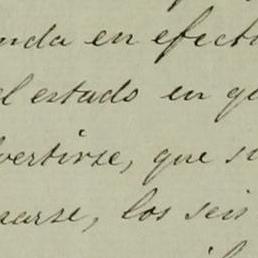 nda en efect
el estado en q
vertirse, que s
sarse, los seis